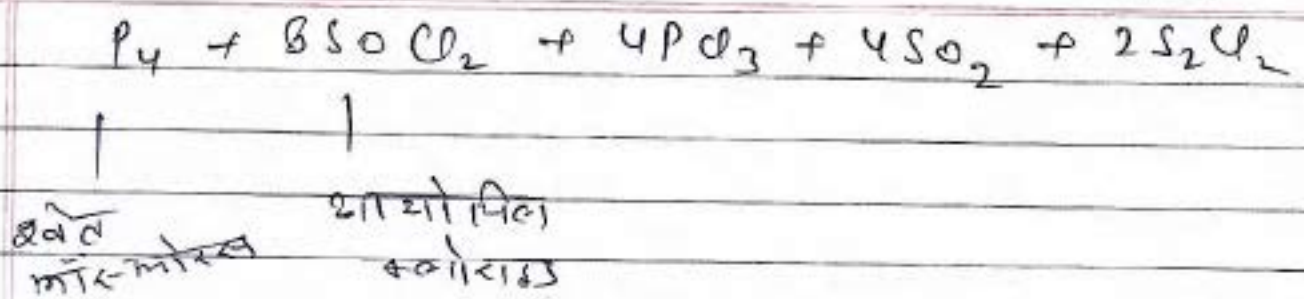 P₄ + 8SOCl₂ + 4PCl₃ + 4SO₂ + 2S₂Cl₂
श्वेत थायोनिल
फॉस्फोरस क्लोराइड